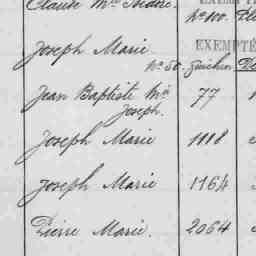 Claude Mie Isidore.
No 100.
EXEMPTÉ
Joseph Marie
No 50.
Jean Baptiste Mie 77
Joseph.
Joseph Marie 1118
Joseph Marie 1164
Pierre Marie. 2054